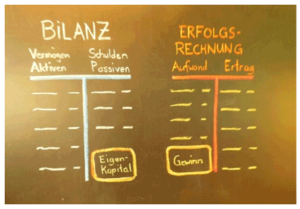 BiLANZ
Vermögen Schulden
Aktiven Passiven
Eigen-
Kapital
ERFOLGS-
RECHNUNG
Aufwand Ertrag
Gewinn